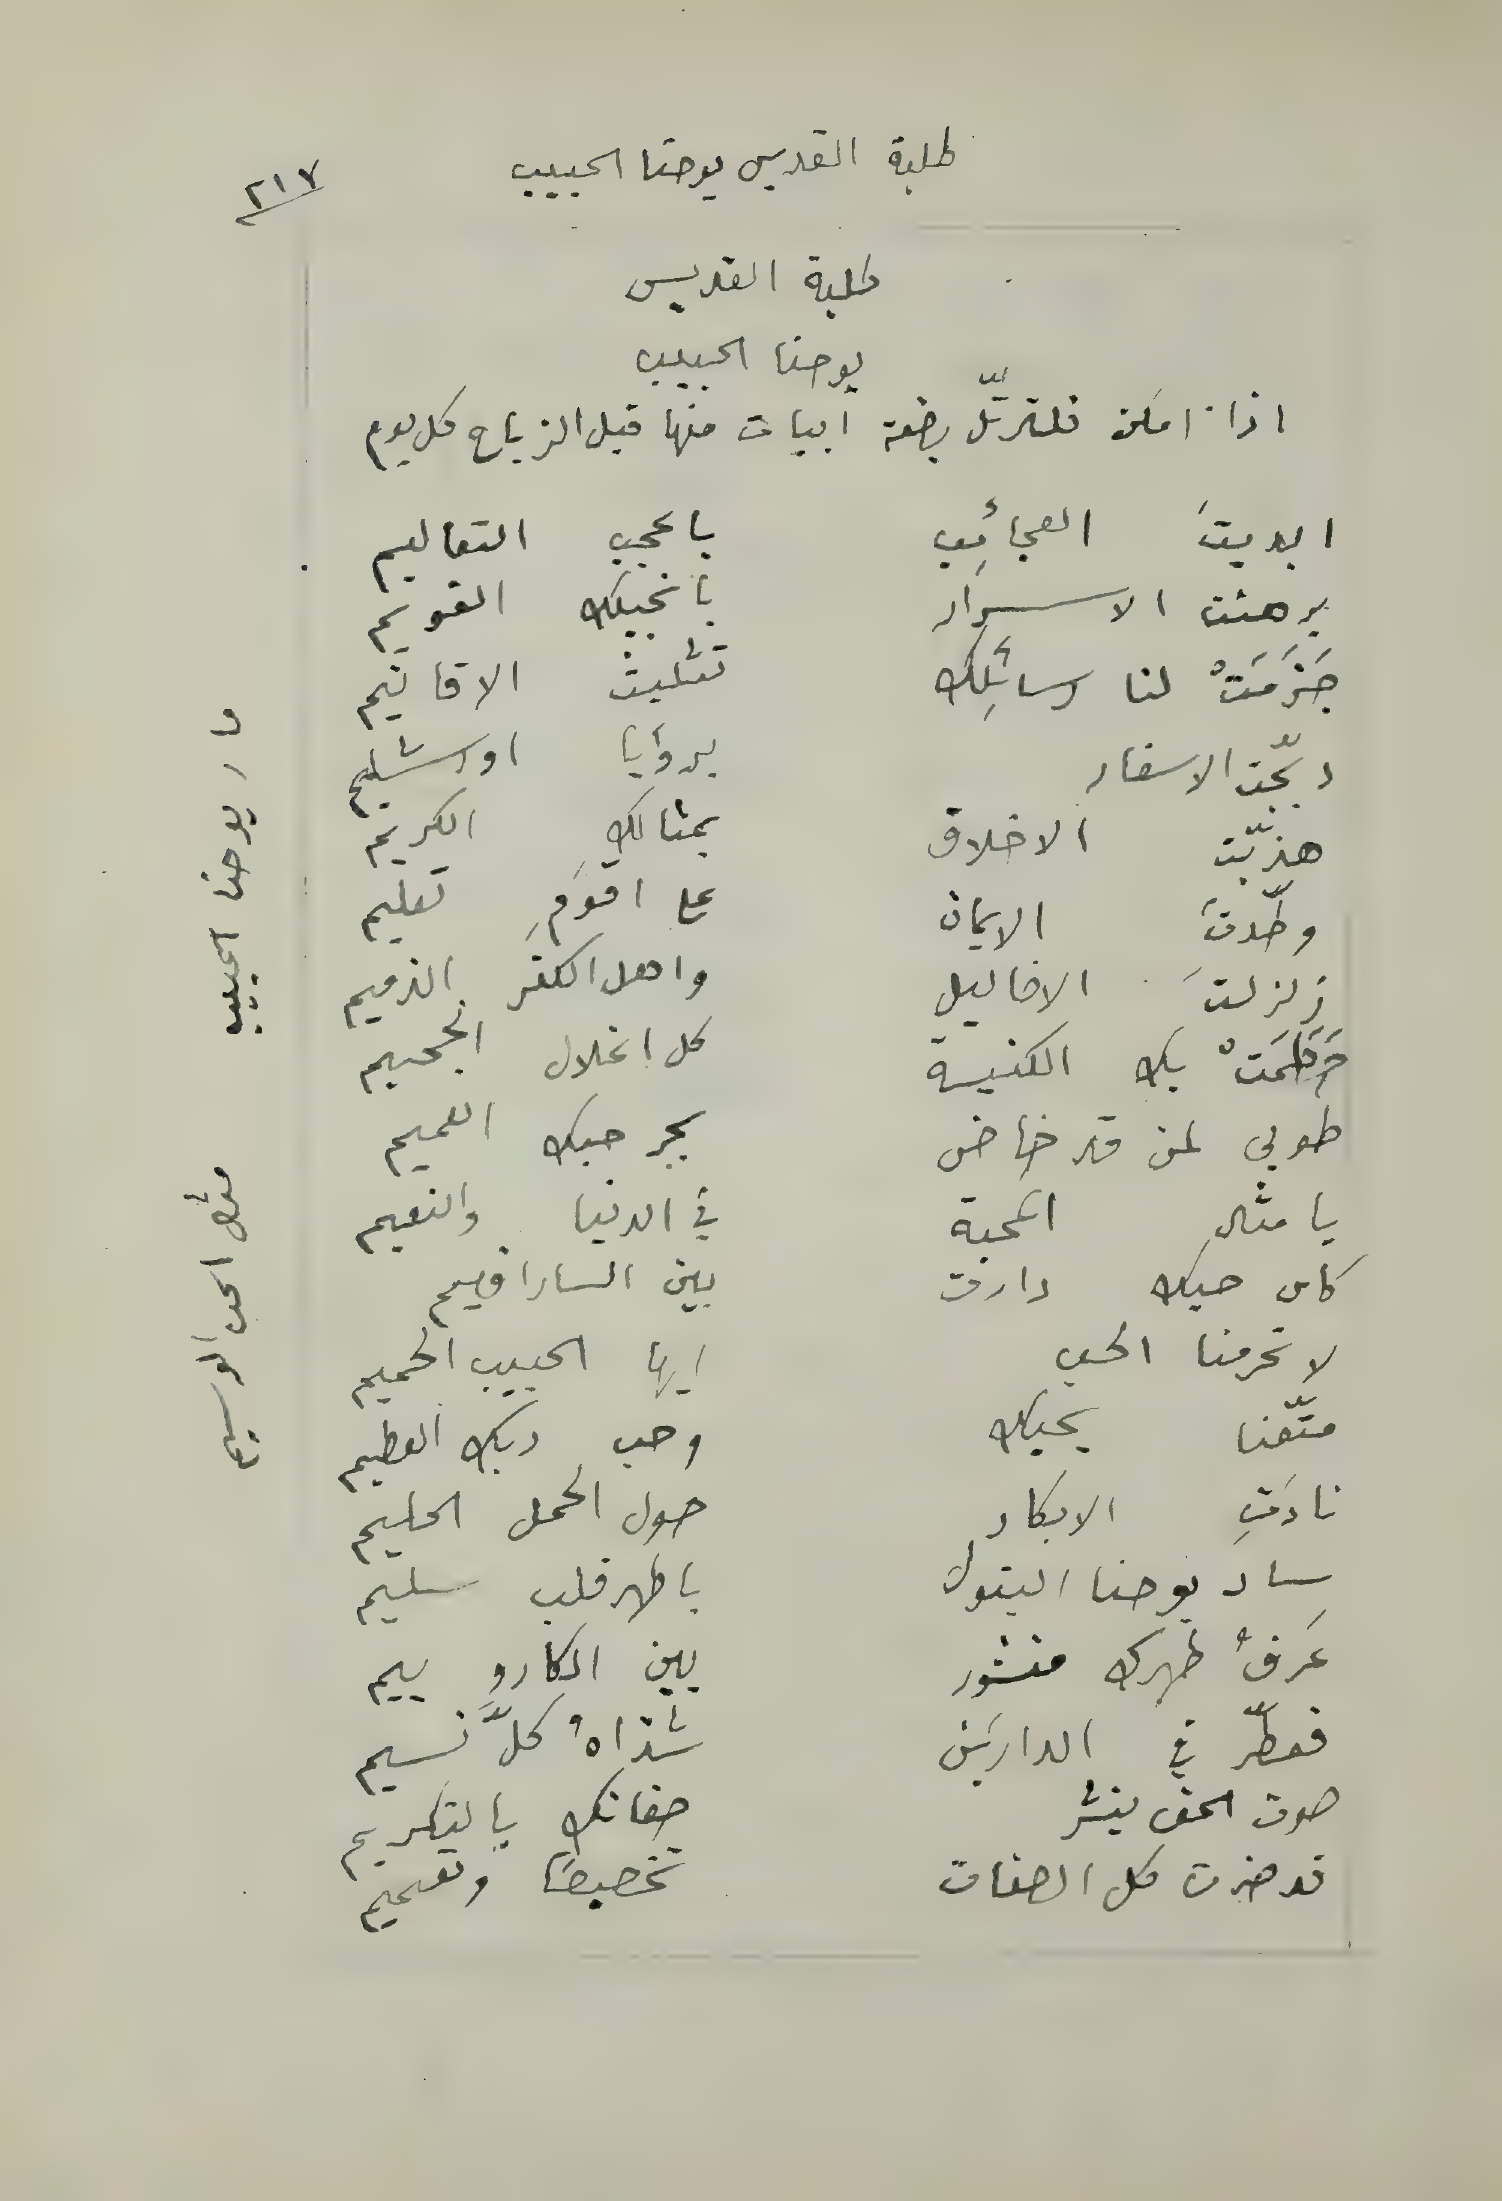 طلبة القديس يوحنا الحبيب
٢١٧
طلبة القديس
يوحنا الحبيب
اذا امكن فلترتّل بضعة ابيات منها قبل الزياح كل يوم
ابديتَ العجائِب باعجب التعاليم
برهنت الاسرَار بانجيلك القويم
جَزَمَتْ لنا رسائِلك تثليث الاقانيم
دبّجت الاسفار برؤيا اورشليم
هذبّت الاخلاق بمثالك الكريم
وطّدتَ الايمان على اقوَمِ تعليم
زلزلتَ الاضاليل واهل الكفر الذميم
حَطَمَتْ بك الكنيسة كل اغلال الجحيم
طوبى لمن قد خاض بحر حبك العميم
يا مثال المحبة في الدنيا والنعيم
كاس حبك دارت بين السارافيم
لا تحرمنا الحب ايها الحبيب الحميم
متّعنا بحبك وحب ربك العظيم
نادَتِ الابكار حول الحمل الحليم
ساد يوحنا البتول باطهر قلب سليم
عَرفُ طهرك منشور بين الكاروبيم
فعطّر في الدارين شذاهُ كلَّ نسيم
صوت الحق ينشر صفاتك بالتكريم
قد حزت كل الصفات تخصيصًا وتعميم
مار يوحنا الحبيب
مثال الحب الوسيم